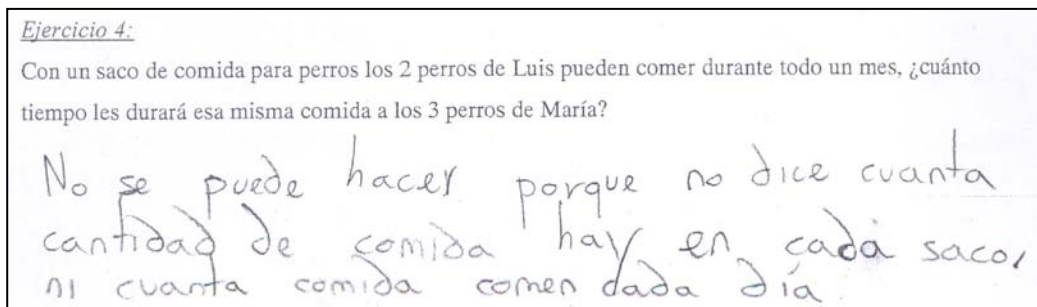 Ejercicio 4:
Con un saco de comida para perros los 2 perros de Luis pueden comer durante todo un mes, ¿cuánto
tiempo les durará esa misma comida a los 3 perros de María?
No se puede hacer porque no dice cuanta
cantidad de comida hay en cada saco,
ni cuanta comida comen dada día